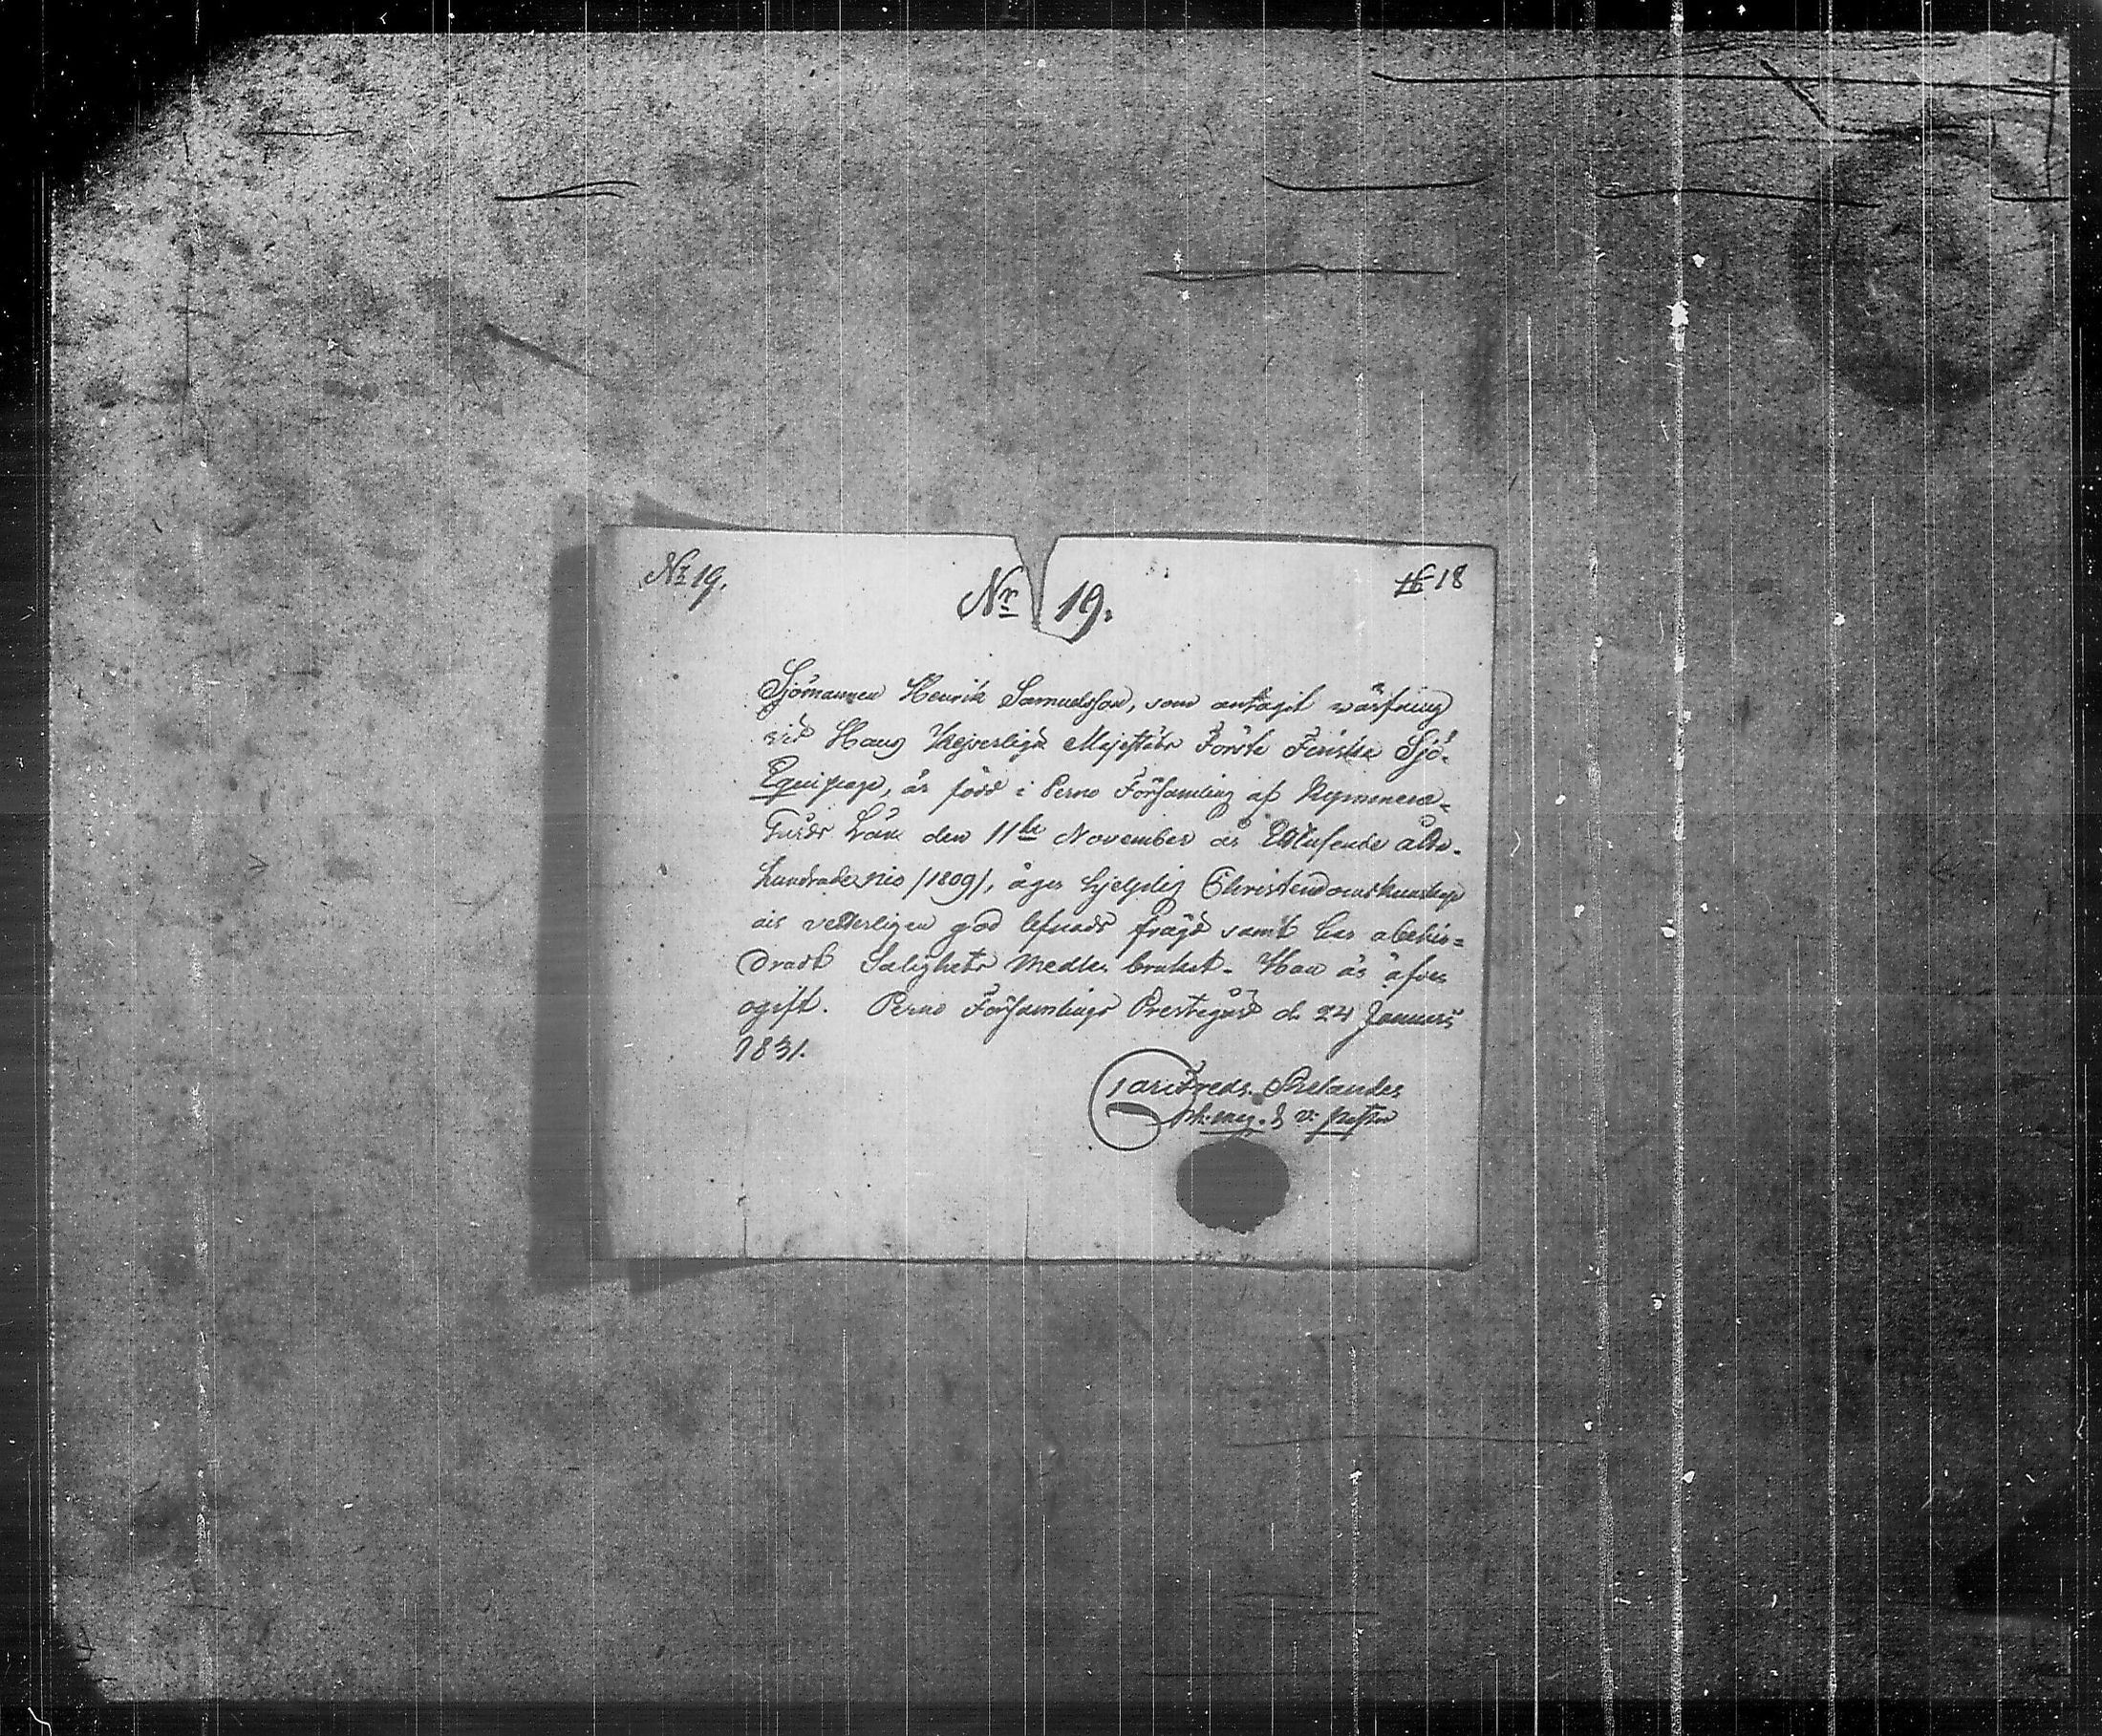 No 19.
Nr 19.
16 18
Sjömannen Henrik Samuelsson, som antagit wärfning
vid Hans Kejserliga Majestäts Förste Finska Sjö-
Equipage, är född i Perno Församling af Kymmene-
Gårds Län den 11te November år Ettusende åtta-
hundrade nio /1809/, äger hjelplig Christendomskunskap
är vetterligen god lefnads frägd samt har obehin-
dradt Salighets Medlen brukat. Han är äfven
ogift. Perno Församlings Prestegård d. 24 Januarii
1831.
Carl Fredr.
v: pastor